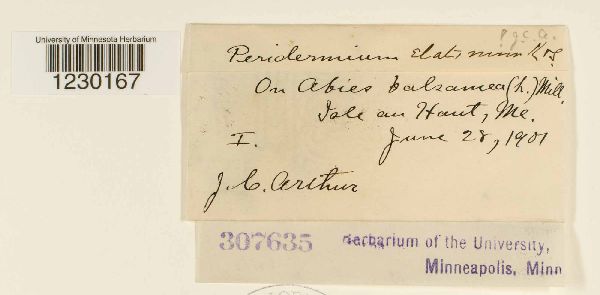 University of Minnesota Herbarium
1230167
P g. C. a.
Peridermium elatinum K&S
On Abies balsamea (L.) Mill.
Isle au Haut, Me.
I. June 28, 1901
J. C. Arthur
307635 Herbarium of the University,
Minneapolis, Minn